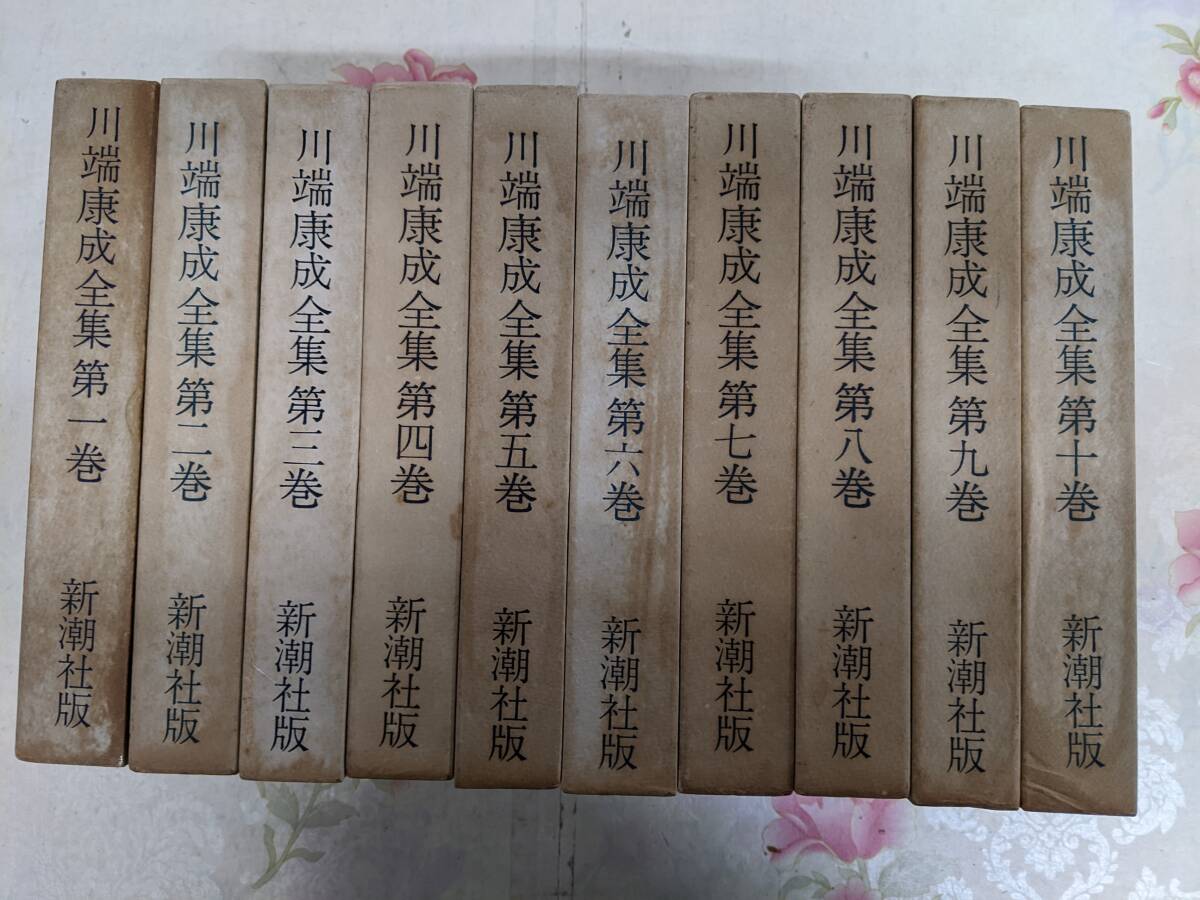 川端康成全集 第一巻 新潮社版
川端康成全集 第二巻 新潮社版
川端康成全集 第三巻 新潮社版
川端康成全集 第四巻 新潮社版
川端康成全集 第五巻 新潮社版
川端康成全集 第六巻 新潮社版
川端康成全集 第七巻 新潮社版
川端康成全集 第八巻 新潮社版
川端康成全集 第九巻 新潮社版
川端康成全集 第十巻 新潮社版